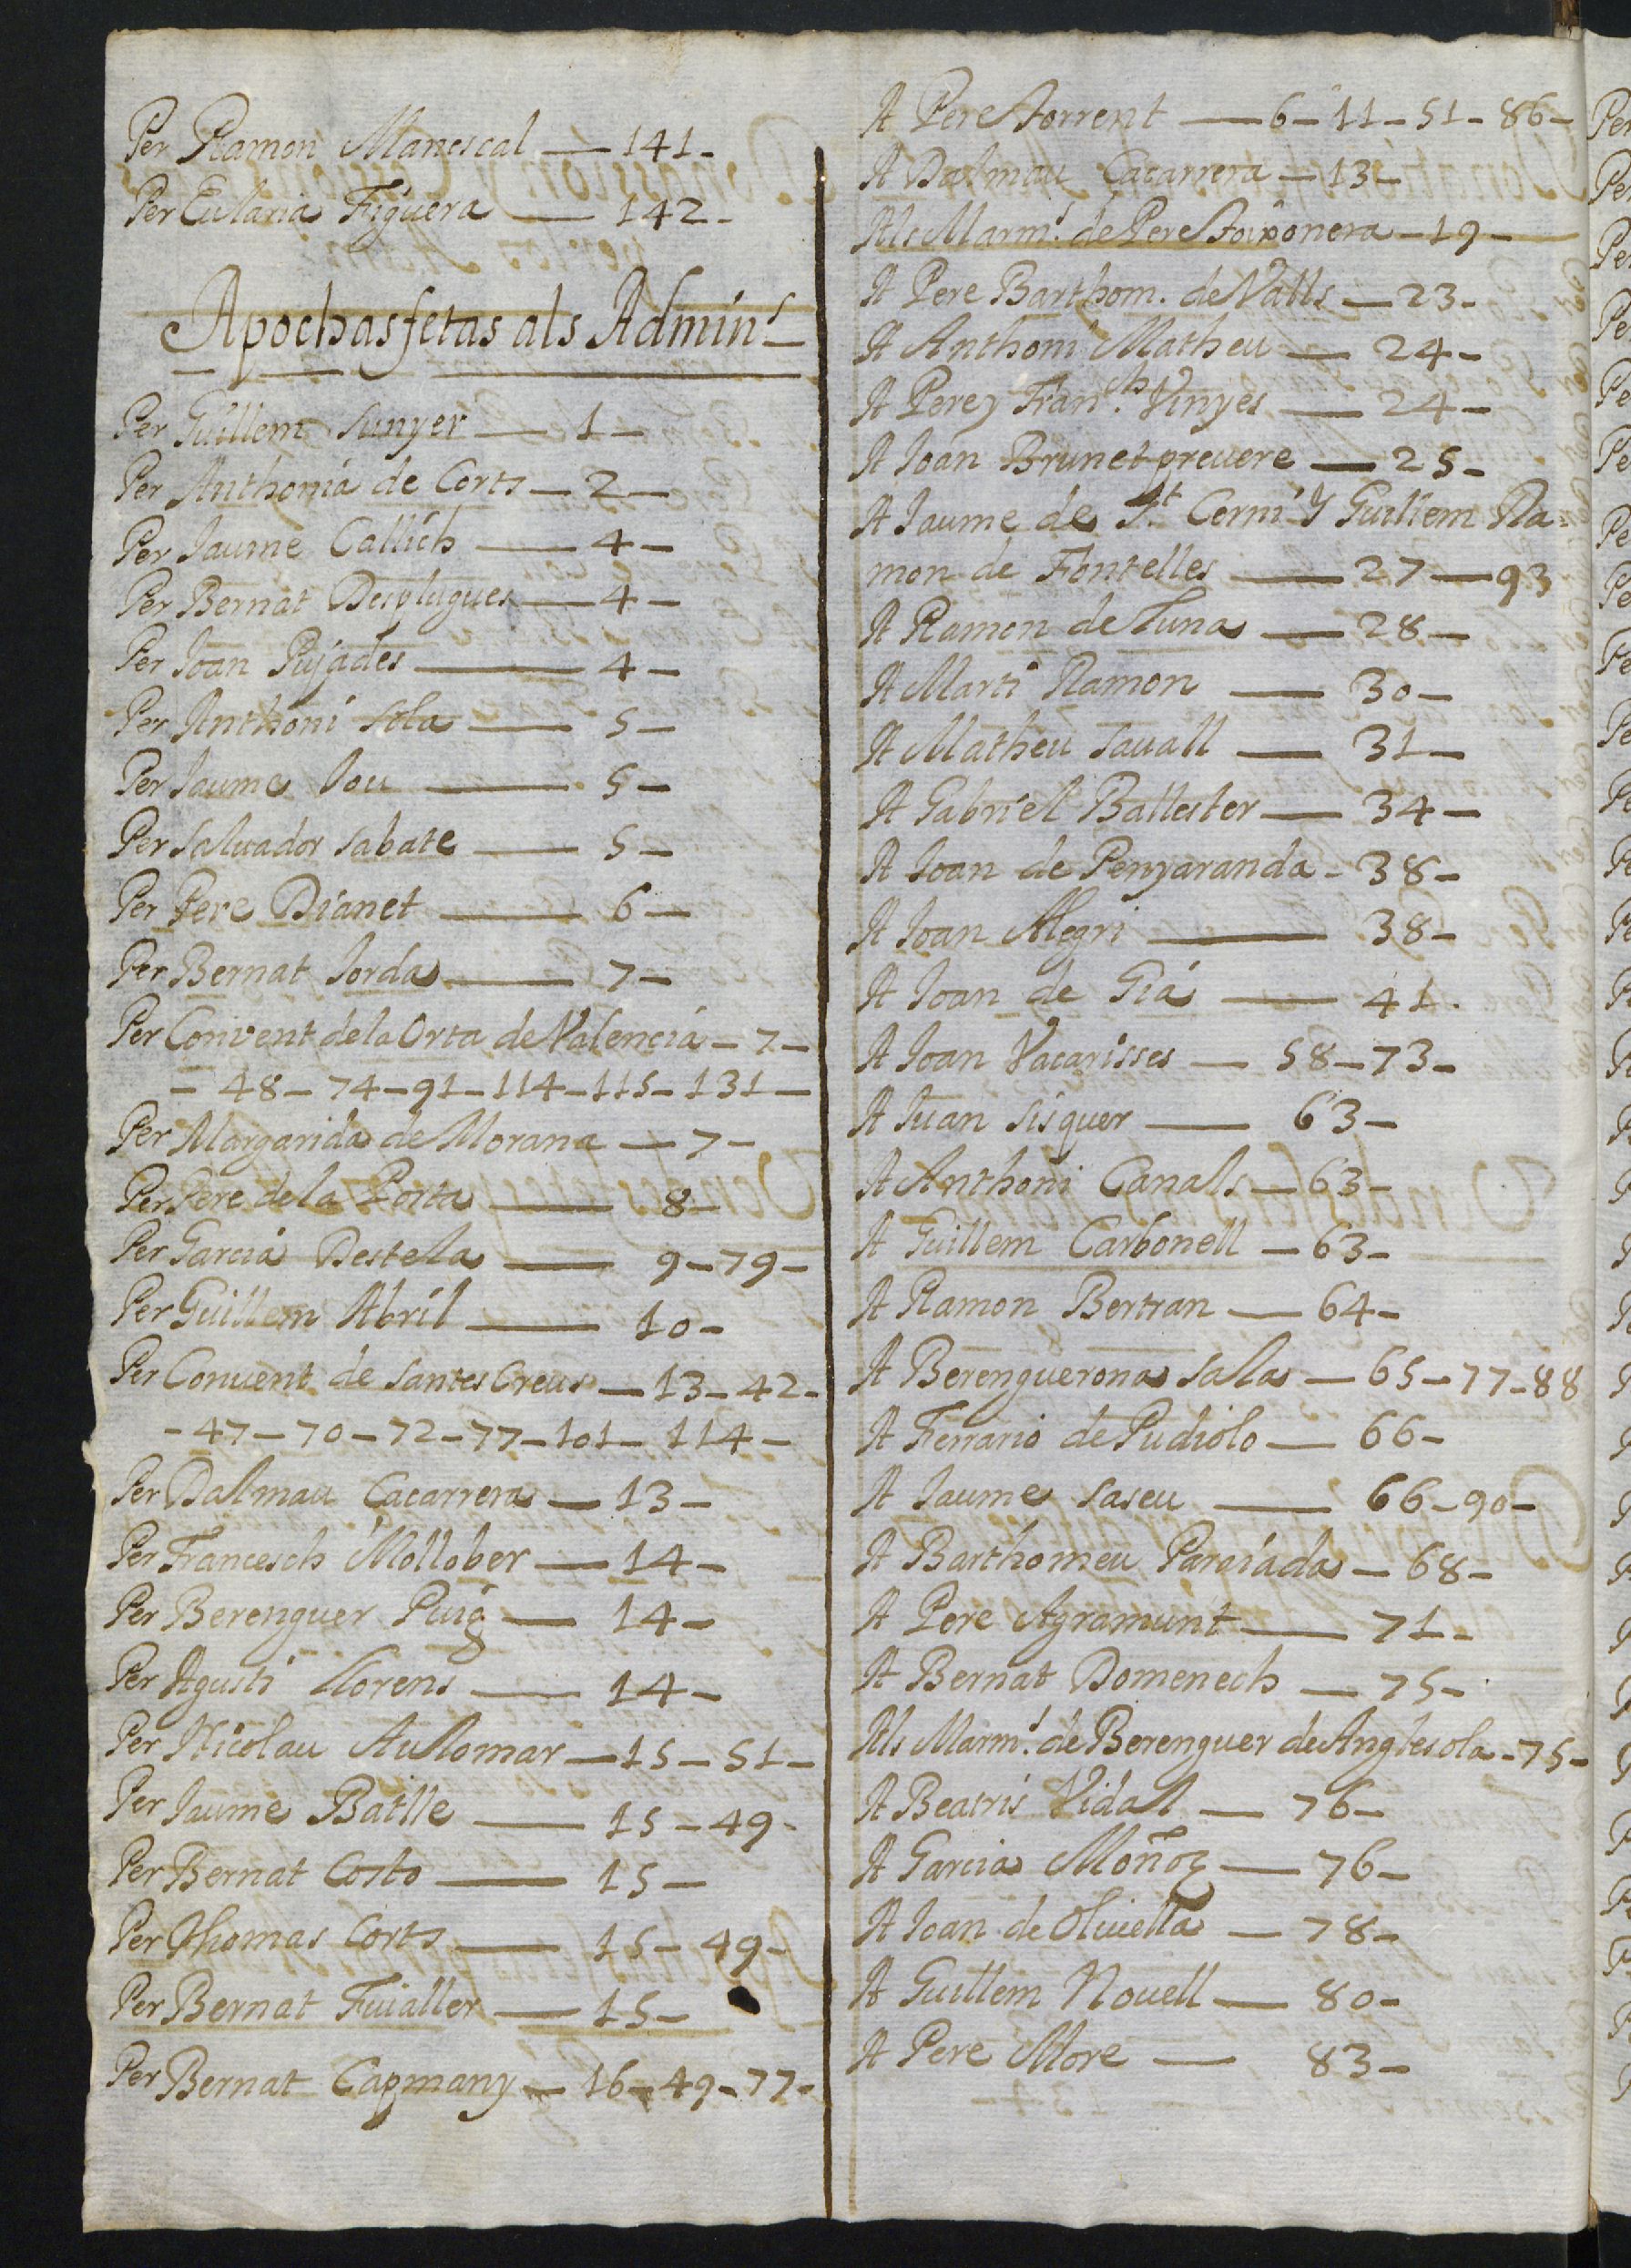 Per Ramon Manescal — 141 -
Per Eularia Figuera — 142 -
Apochas fetas als Admin.s
Per Guillem Sunyer — 1 -
Per Anthonia de Corts — 2 —
Per Jaume Callich — 4 —
Per Bernat Desplugues — 4 —
Per Joan Pujades — 4 —
Per Anthoni Sola — 5 —
Per Jaume Jou — 5 —
Per Saluador Sabate — 5 —
Per Pere Dianet — 6 —
Per Bernat Jorda — 7 —
Per Convent de la Orta de Valencia — 7 —
- 48 - 74 - 91 - 114 - 115 - 131 —
Per Margarida de Morana — 7 -
Per Pere de la Porta — 8 —
Per Garcia Destela — 9 - 79 -
Per Guillem Abril — 10 -
Per Conuent de Santes Creus — 13 - 42 -
- 47 - 70 - 72 - 77 - 101 - 114 -
Per Dalmau Cacarrera — 13 -
Per Francesch Mollober — 14 -
Per Berenguer Puig — 14 -
Per Agusti Llorens — 14 -
Per Nicolau Aulomar — 15 - 51 -
Per Jaume Batlle — 15 - 49 -
Per Bernat Costo — 15 —
Per Thomas Corts — 15 - 49 -
Per Bernat Fuialler — 15 -
Per Bernat Capmany — 16 - 49 - 77 -
A Pere Torrent — 6 - 11 - 51 - 86 -
A Dalmau Cacarrera — 13 -
Als Marm.s de Pere - 19 -
A Pere Barthom. de Valls — 23 -
A Anthoni Matheu — 24 -
A Pere y Fran.ch Vinyes — 24 -
A Joan Brunet preuere — 25 -
A Jaume de S.t Cerni y Guillem Ra-
mon de Fontelles — 27 — 93
A Ramon de Luna — 28 —
A Marti Ramon — 30 —
A Matheu Sauall — 31 —
A Gabriel Ballester — 34 —
A Joan de Penyaranda - 38 -
A Joan Alegri — 38 -
A Joan de Gia — 41 .
A Joan Vacarisses — 58 - 73 -
A Juan Sisquer — 63 -
A Anthoni Canals — 63 -
A Guillem Carbonell — 63 -
A Ramon Bertran — 64 -
A Berenguerona Sala — 65 - 77 - 88
A Ferrario de Pudiolo — 66 -
A Jaume Saseu — 66 - 90 -
A Barthomeu Paraiada — 68 -
A Pere Agramunt — 71 -
A Bernat Domenech — 75 -
Als Marm.s de Berenguer de Anglesola - 75 -
A Beatris Vidal — 76 -
A Garcia Moñoz — 76 -
A Joan de Oliuella — 78 -
A Guillem Nouell — 80 -
A Pere More — 83 -